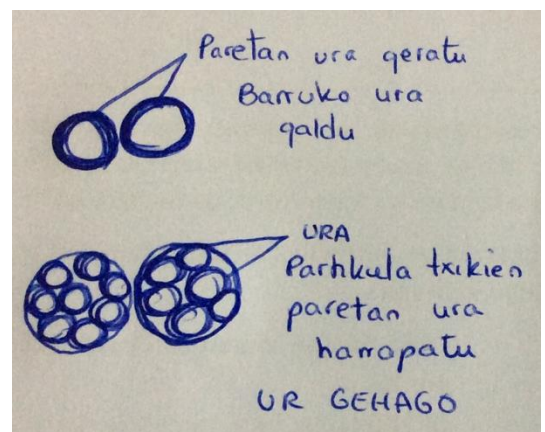 Paretan ura geratu
Barruko ura
galdu
URA
Partikula txikien
paretan ura
harrapatu
UR GEHIAGO